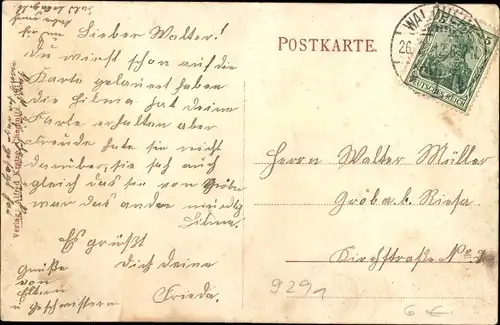 Lieber Walter!
Du wirst schon auf die
Karte gelauert haben
die Hilma hat deine
Karte erhalten aber
Freude hatte sie nicht
darüber, sie sah auch
gleich das sie von Gröba
war das andre
Hilma.
Es grüßt
Dich deine
Frieda.
Grüße
von
Eltern
u Geschwistern
Verlag: Alfred
POSTKARTE.
WALDH
26
DEUTSCHES REICH
Herrn Walter Müller
Gröba b. Riesa
Kirchstraße No 9
9291
6 €